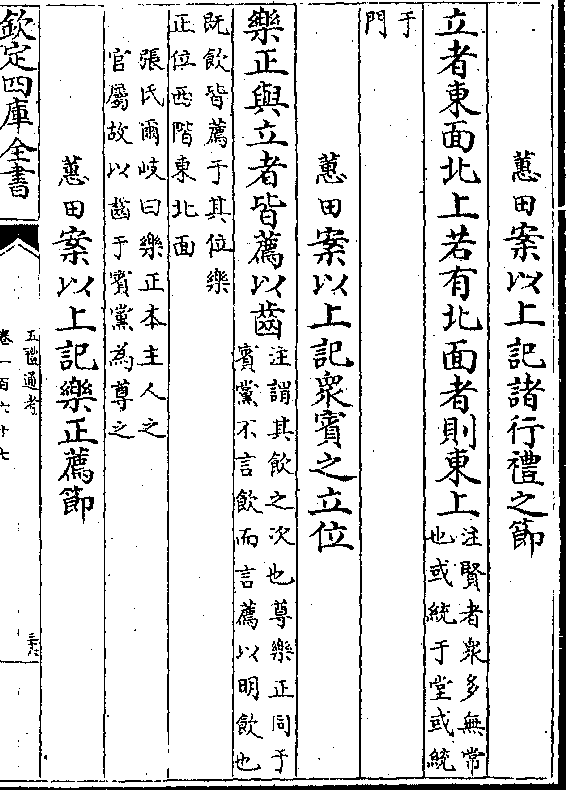 蕙田案以上記諸行禮之節
立者東面北上若有北面者則東上注賢者衆多無常
也或統于堂或統
于
門
蕙田案以上記衆賓之立位
樂正與立者皆薦以齒注謂其飲之次也尊樂正同于
賓黨不言飲而言薦以明飲也
既飲皆薦于其位樂
正位西階東北面
張氏爾岐曰樂正本主人之
官屬故以齒于賓黨為尊之
蕙田案以上記樂正薦節
欽定四庫全書
五禮通考
卷一百六十七